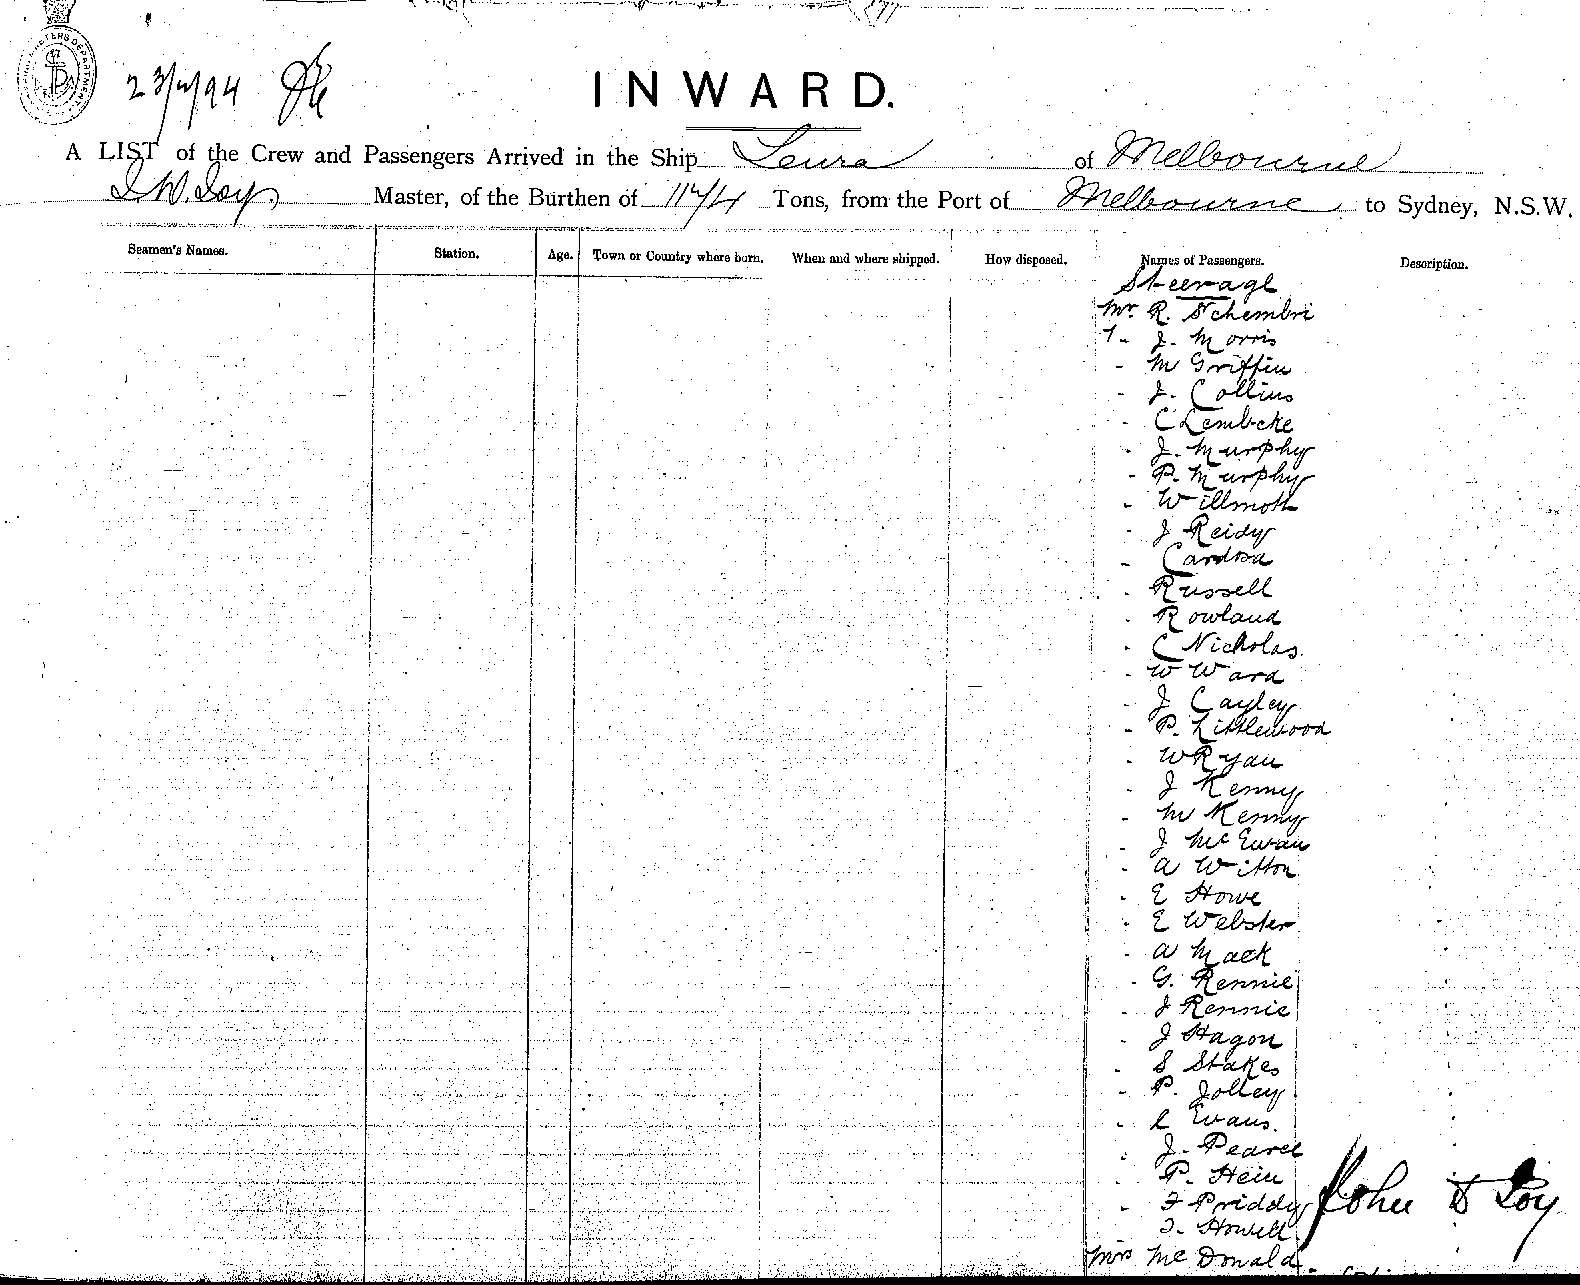 23/4/94
INWARD.
A LIST of the Crew and Passengers Arrived in the Ship Leura of Melbourne
J. W. Loy Master, of the Burthen of Tons, from the Port of Melbourne to Sydney, N.S.W.
Seamen's Names. Station. Age. Town or Country where born. When and where shipped. How disposed. Names of Passengers. Description.
Steerage
Mr. R. Schembri
J. Morris
M Griffin
J. Collins
C Lembcke
J. Murphy
P. Murphy
Willmott
J Reidy
Cardosa
Russell
Rowland
C Nicholas
W Ward
J Cayley
P. Littlewood
W Ryan
J Kenny
M Kenny
J McEwan
A Witton
E Howe
E Webster
A Mack
G. Rennie
J Rennie
J Hagon
S Stakes
P. Jolley
Evans.
J. Pearce
P. Hein
F Priddy
Howell
John W Loy
Mrs McDonald